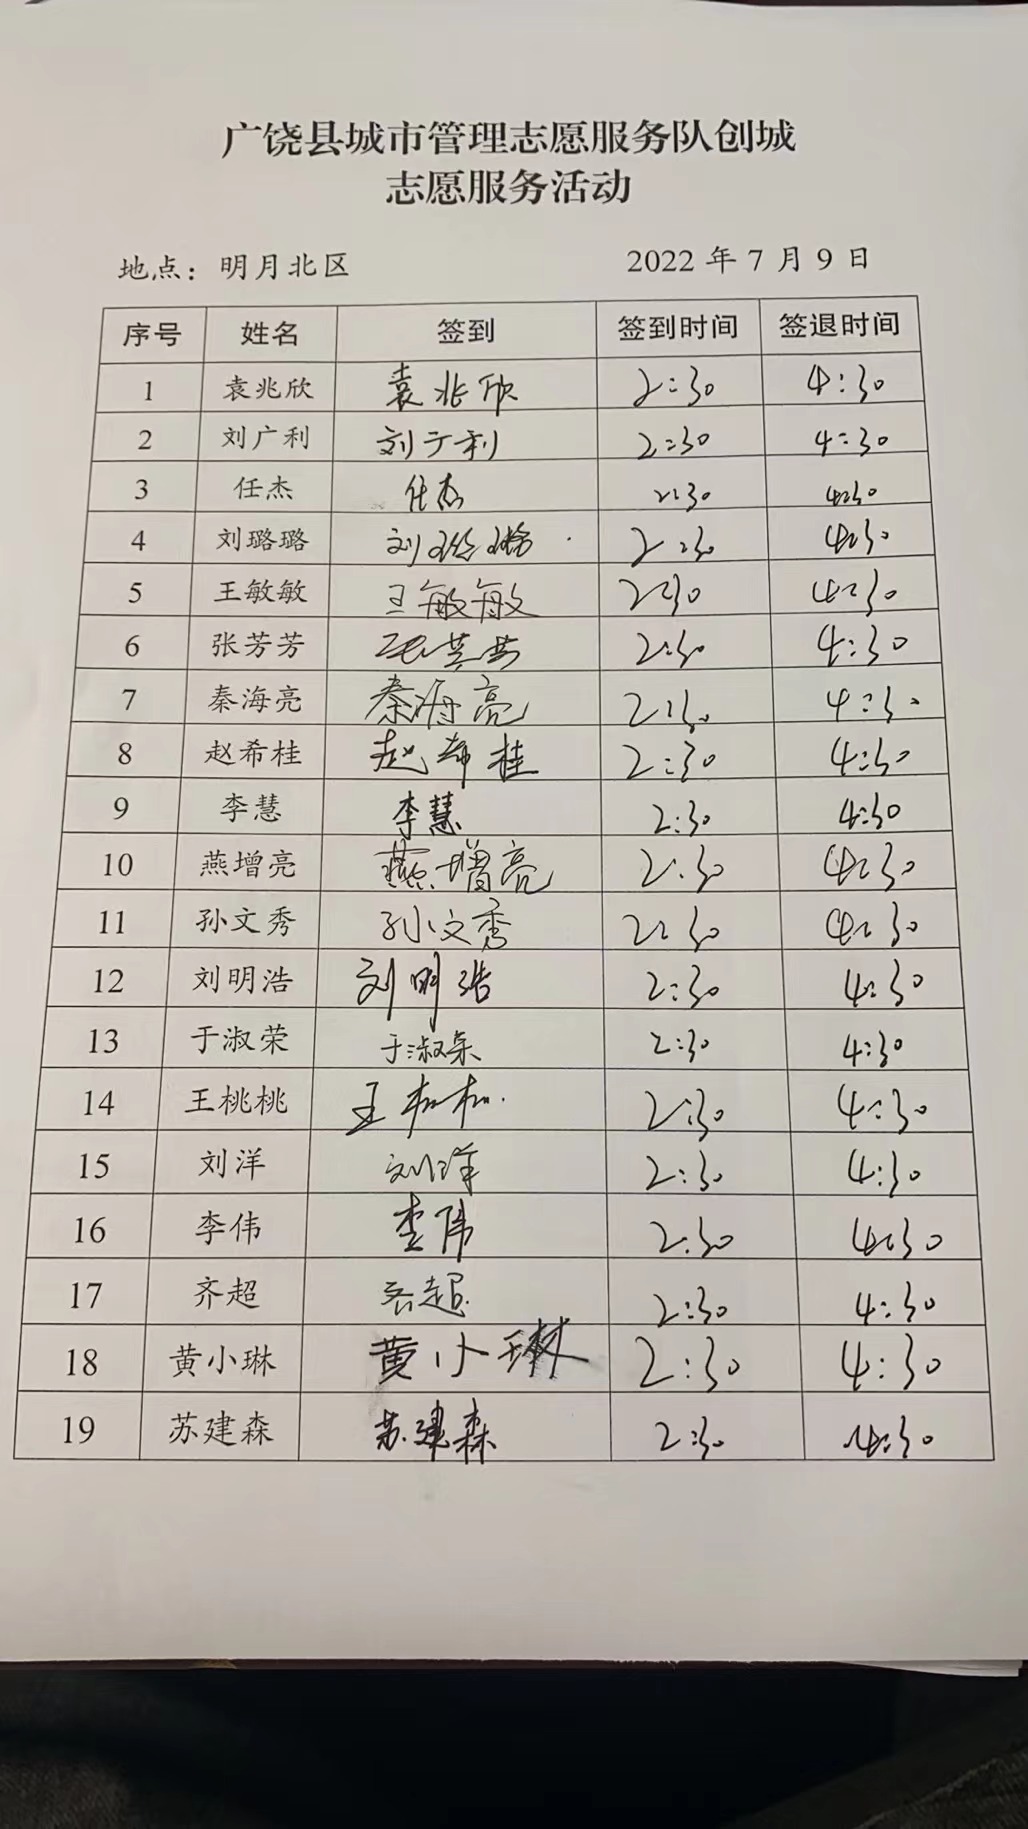 广饶县城市管理志愿服务队创城
志愿服务活动
地点：明月北区 2022 年 7 月 9 日
序号 姓名 签到 签到时间 签退时间
1 袁兆欣 袁兆欣 2:30 4:30
2 刘广利 刘广利 2:30 4:30
3 任杰 任杰 2:30 4:30
4 刘璐璐 刘璐璐 2:30 4:30
5 王敏敏 王敏敏 2:30 4:30
6 张芳芳 张芳芳 2:30 4:30
7 秦海亮 秦海亮 2:30 4:30
8 赵希桂 赵希桂 2:30 4:30
9 李慧 李慧 2:30 4:30
10 燕增亮 燕增亮 2:30 4:30
11 孙文秀 孙文秀 2:30 4:30
12 刘明浩 刘明浩 2:30 4:30
13 于淑荣 于淑荣 2:30 4:30
14 王桃桃 王桃桃 2:30 4:30
15 刘洋 刘洋 2:30 4:30
16 李伟 李伟 2:30 4:30
17 齐超 齐超 2:30 4:30
18 黄小琳 黄小琳 2:30 4:30
19 苏建森 苏建森 2:30 4:30